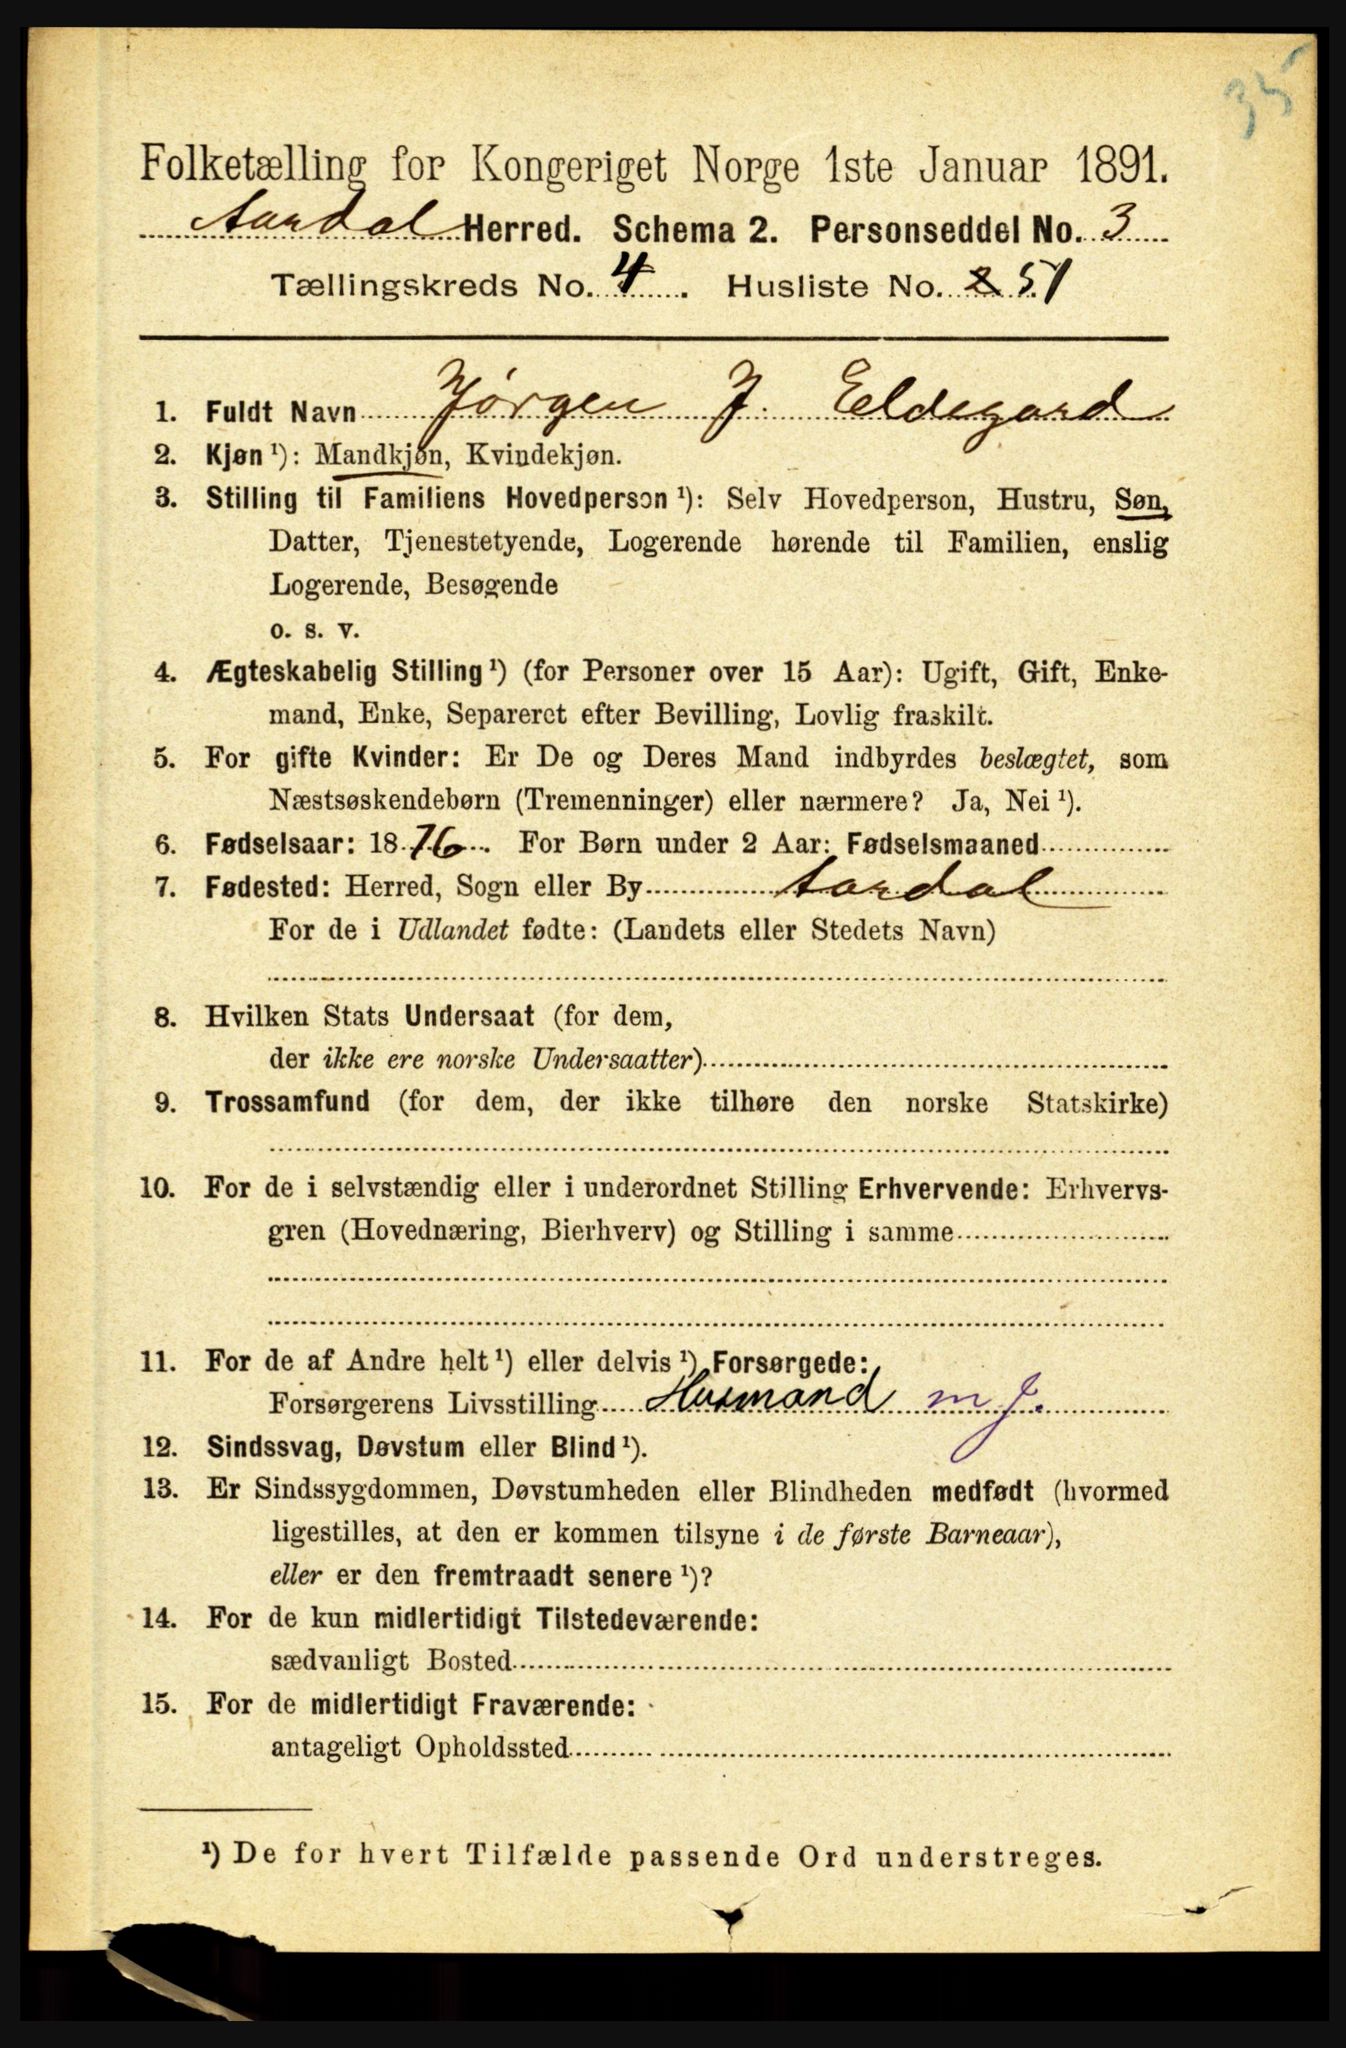 35
Folketælling for Kongeriget Norge 1ste Januar 1891.
Aardal Herred. Schema 2. Personseddel No. 3
Tællingskreds No. 4. Husliste No. 51
1. Fuldt Navn Jørgen J. Eldegard
2. Kjøn ¹): Mandkjøn, Kvindekjøn.
3. Stilling til Familiens Hovedperson ¹): Selv Hovedperson, Hustru, Søn,
Datter, Tjenestetyende, Logerende hørende til Familien, enslig
Logerende, Besøgende
o. s. v.
4. Ægteskabelig Stilling ¹) (for Personer over 15 Aar): Ugift, Gift, Enke-
mand, Enke, Separeret efter Bevilling, Lovlig fraskilt.
5. For gifte Kvinder: Er De og Deres Mand indbyrdes beslægtet, som
Næstsøskendebørn (Tremenninger) eller nærmere? Ja, Nei ¹).
6. Fødselsaar: 1876. For Børn under 2 Aar: Fødselsmaaned
7. Fødested: Herred, Sogn eller By Aardal
For de i Udlandet fødte: (Landets eller Stedets Navn)
8. Hvilken Stats Undersaat (for dem,
der ikke ere norske Undersaatter)
9. Trossamfund (for dem, der ikke tilhøre den norske Statskirke)
10. For de i selvstændig eller i underordnet Stilling Erhvervende: Erhvervs-
gren (Hovednæring, Bierhverv) og Stilling i samme
11. For de af Andre helt ¹) eller delvis ¹) Forsørgede:
Forsørgerens Livsstilling Husmand m J.
12. Sindssvag, Døvstum eller Blind ¹).
13. Er Sindssygdommen, Døvstumheden eller Blindheden medfødt (hvormed
ligestilles, at den er kommen tilsyne i de første Barneaar),
eller er den fremtraadt senere ¹)?
14. For de kun midlertidigt Tilstedeværende:
sædvanligt Bosted
15. For de midlertidigt Fraværende:
antageligt Opholdssted
¹) De for hvert Tilfælde passende Ord understreges.